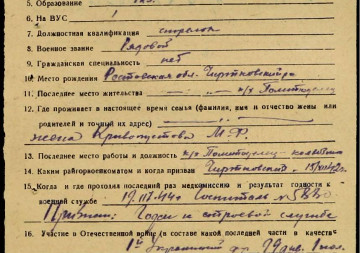 5. Образование
6. На ВУС 1
7. Должностная квалификация стрелок
8. Военное звание Рядовой
9. Гражданская специальность нет
10. Место рождения Ростовская обл. Чертковский р-н
11. Последнее место жительства к/х Политотделец
12. Где проживает в настоящее время семья (фамилия, имя и отчество жены или
родителей и точный их адрес)
жена Кривопустова М. Ф.
13. Последнее место работы и должность к/х Политотделец -
14. Каким райгорвоенкоматом и когда призван Чертковский
15. Когда и где проходил последний раз медкомиссию и результат годности к
военной службе 19.III.44г. Госпиталь
Признан: Годен к строевой службе
16. Участие в Отечественной войне (в составе какой последней части в качестве
1й Украинский фр. 99 див. 1 пол.